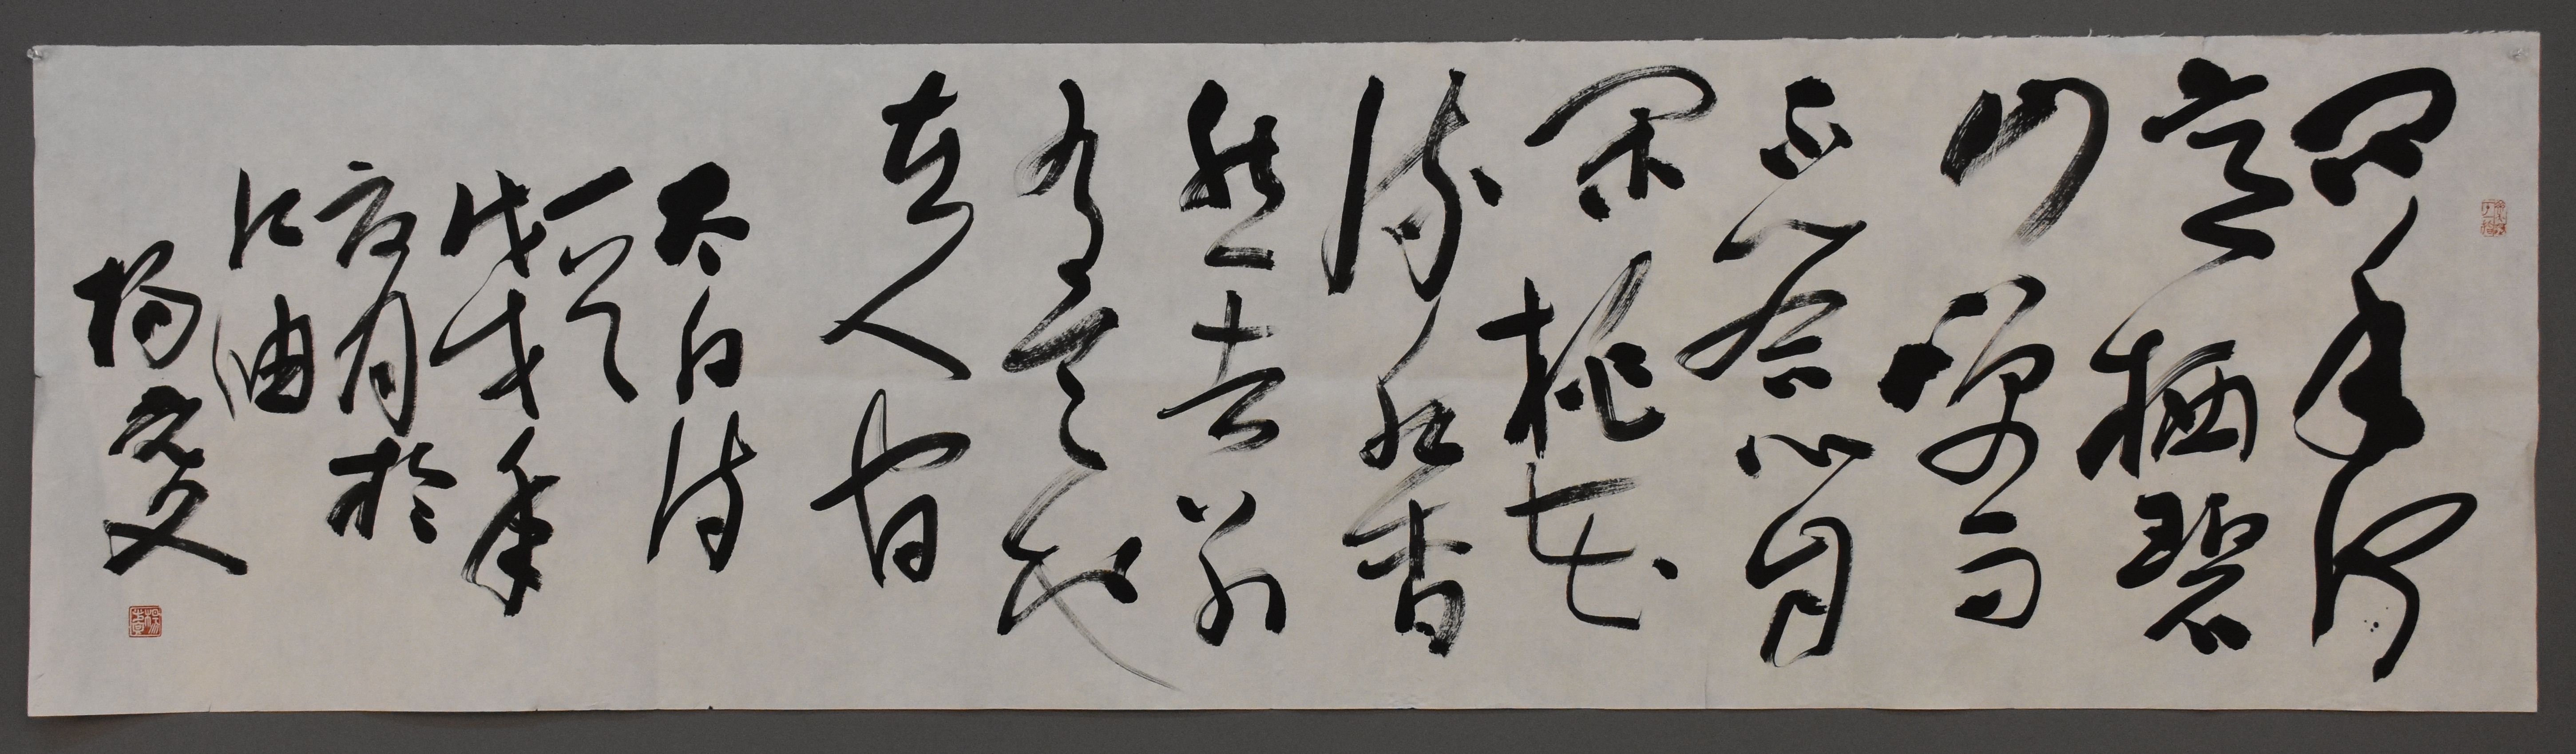 問余何
意栖碧
山笑而
不答心自
閑桃花
流水杳
然去别
有天地
在人間
太白詩
一首
戊戌年
夏月於
江油
楊